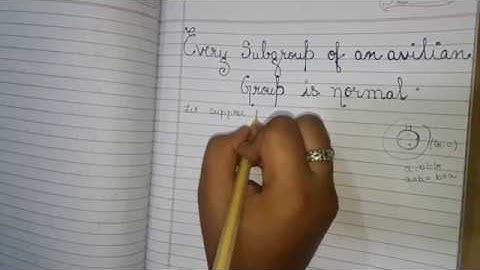 Every Subgroup of an avilian
Group is normal.
Let suppose
(G, o)
a, b ∈ G
aob = boa